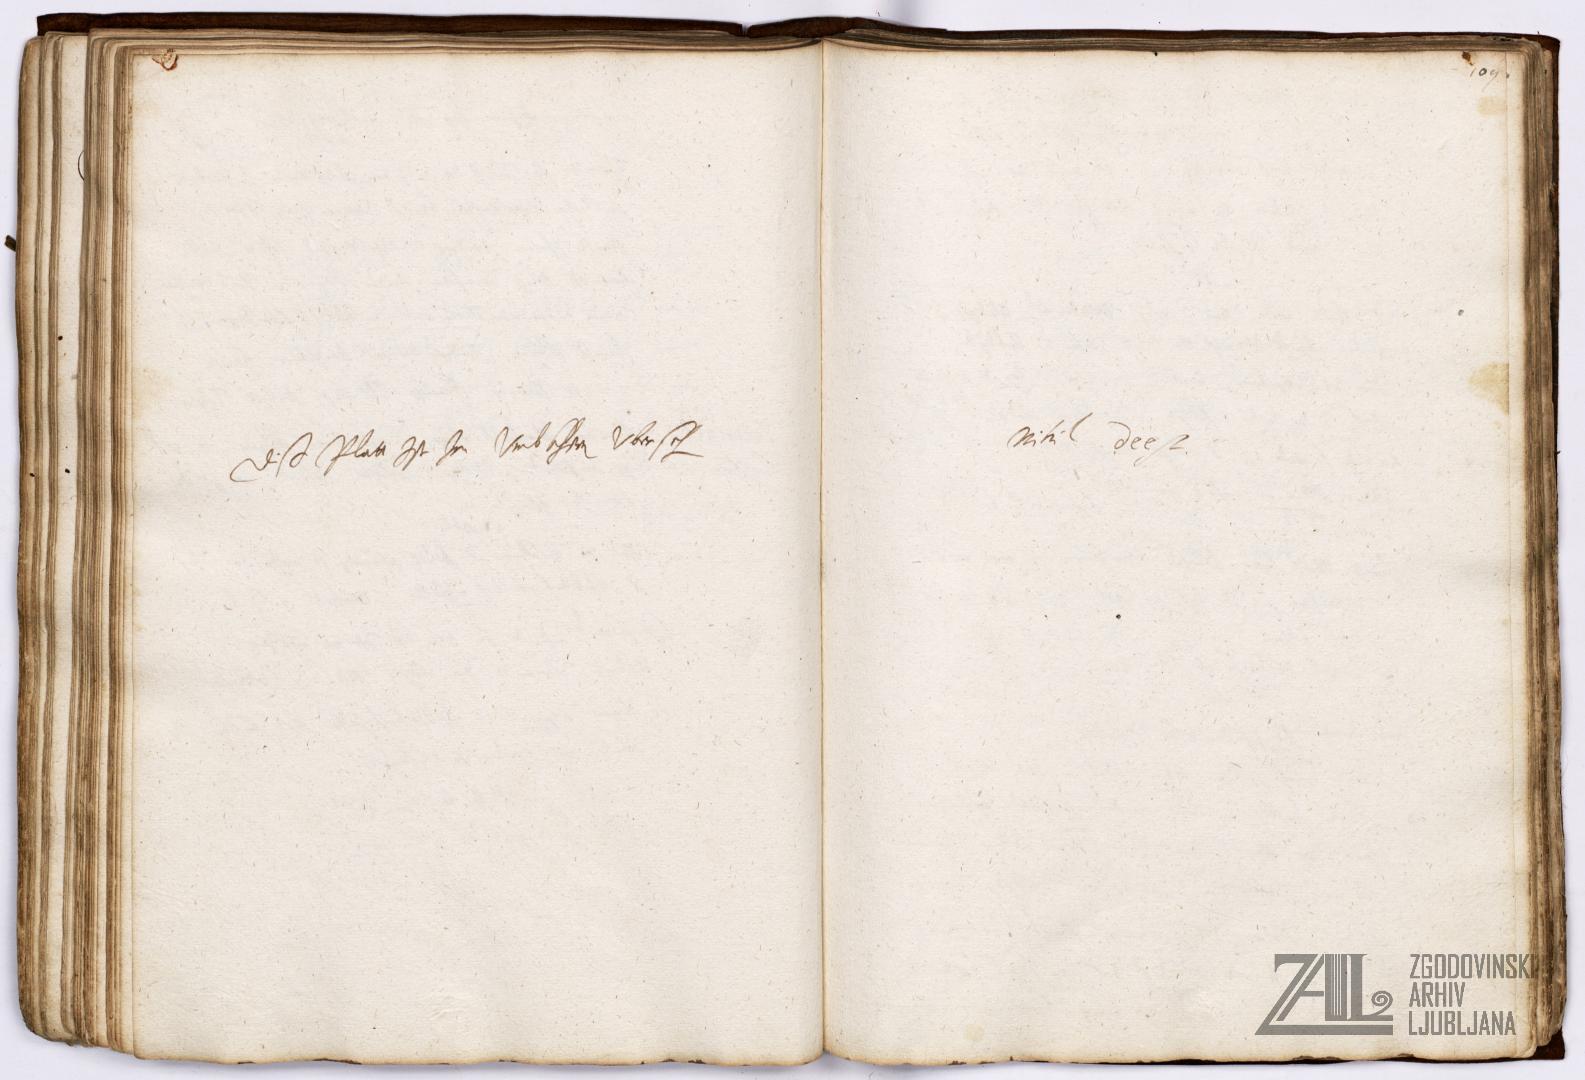 109.
Diß Plat ist im Vmbschlagen Vbersechen
nihil deest.
ZAL
ZGODOVINSKI
ARHIV
LJUBLJANA